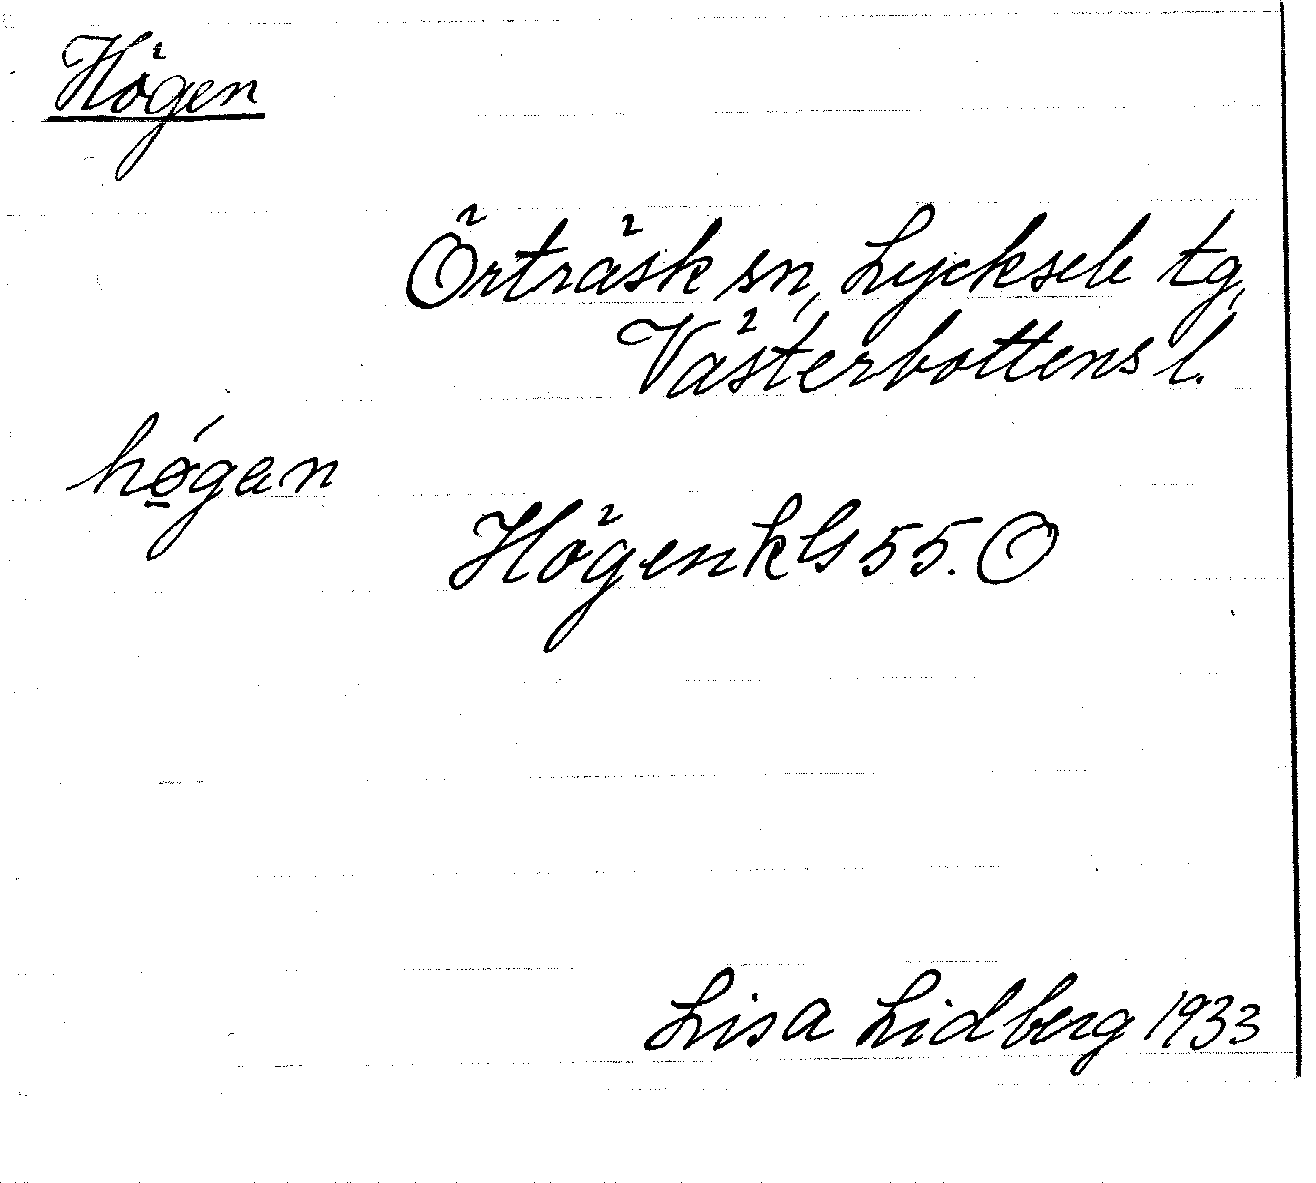 Högen
Örträsk sn, Lycksele tg,
Västerbottens l.
hǿ̲gan
Högen kbl 55. O
Lisa Lidberg 1933